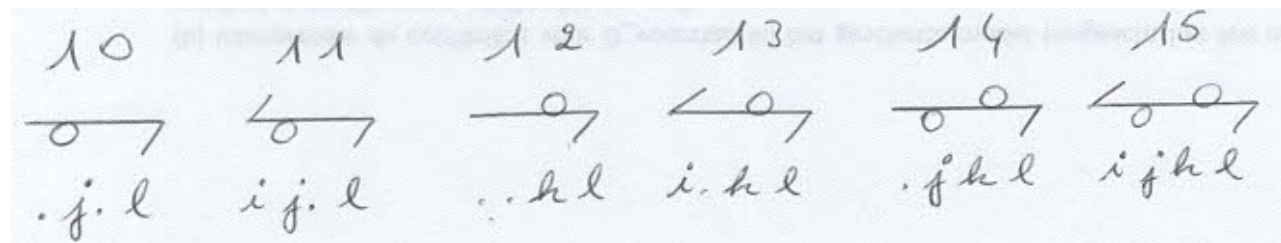 10 11 12 13 14 15
.j.l ij.l ..kl i.kl .jkl ijkl